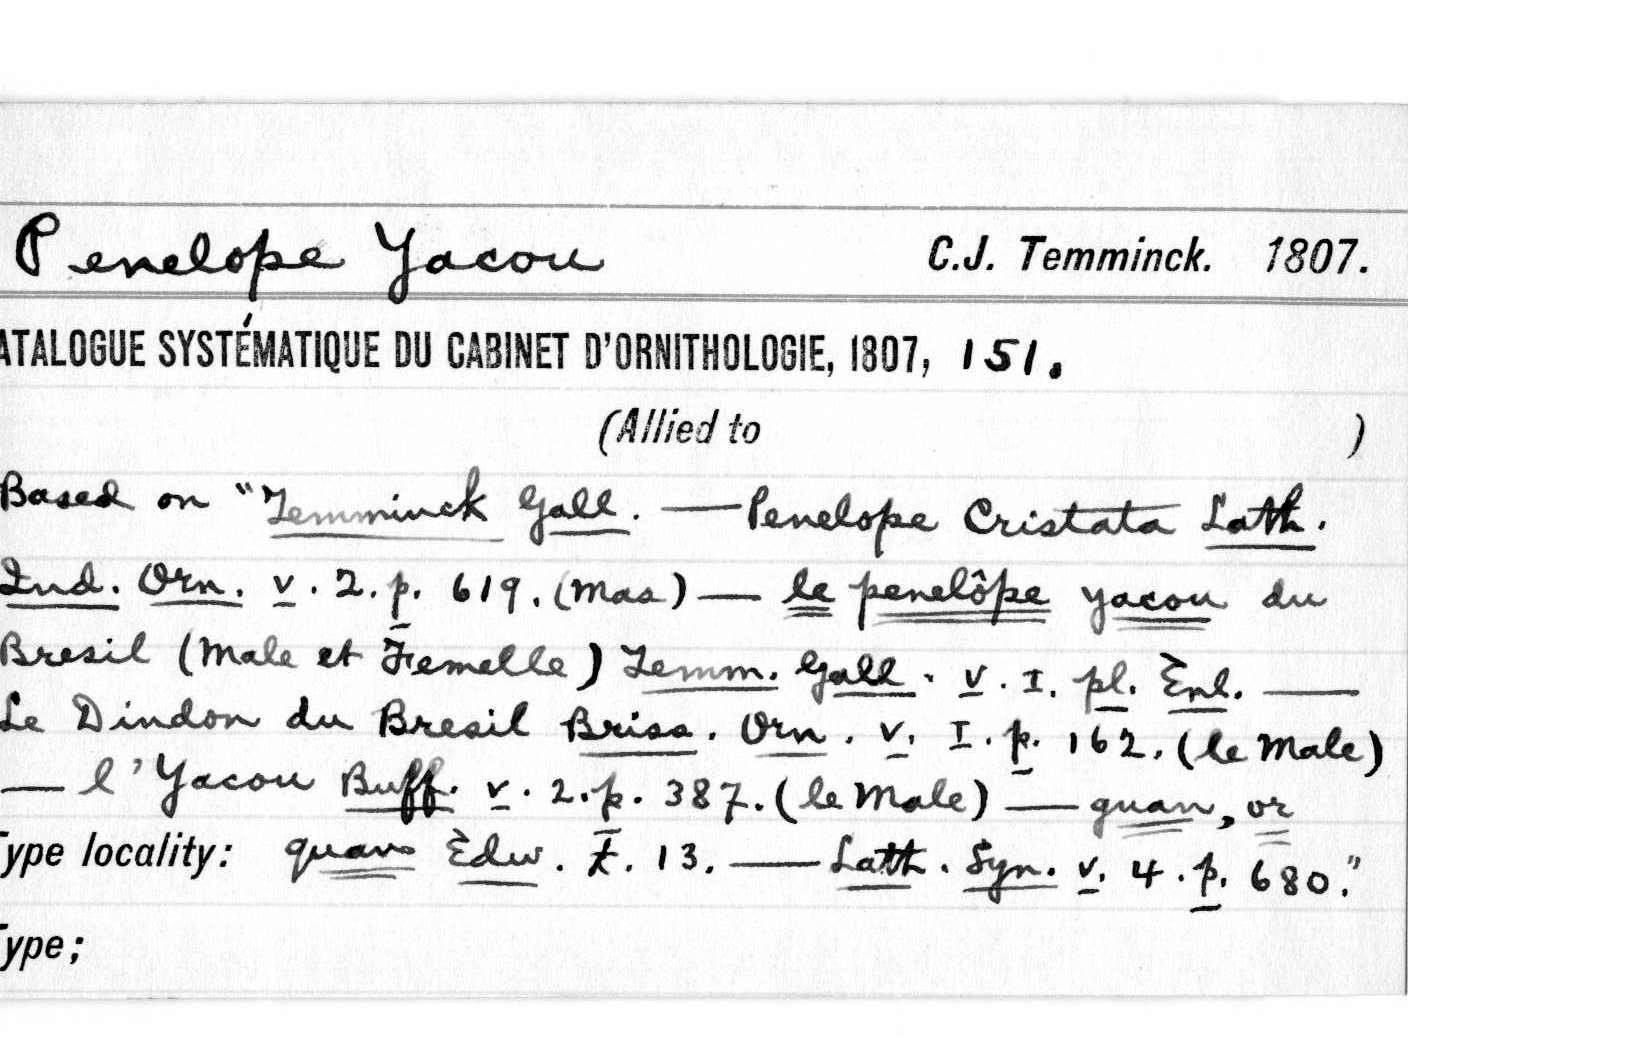 Penelope Yacou C.J. Temminck. 1807.
ATALOGUE SYSTÉMATIQUE DU CABINET D'ORNITHOLOGIE, 1807, 151.
(Allied to )
Based on "Temminck Gall. — Penelope Cristata Lath.
Ind. Orn. v. 2. p. 619. (Mas) — le penelôpe yacou du
Bresil (Male et Femelle) Temm. Gall. v. I. pl. Enl. —
Le Dindon du Bresil Briss. Orn. v. I. p. 162. (le Male)
— l'Yacou Buff. v. 2. p. 387. (le Male) — guan, or
Type locality: quan Edw. t. 13. — Lath. Syn. v. 4. p. 680."
Type;